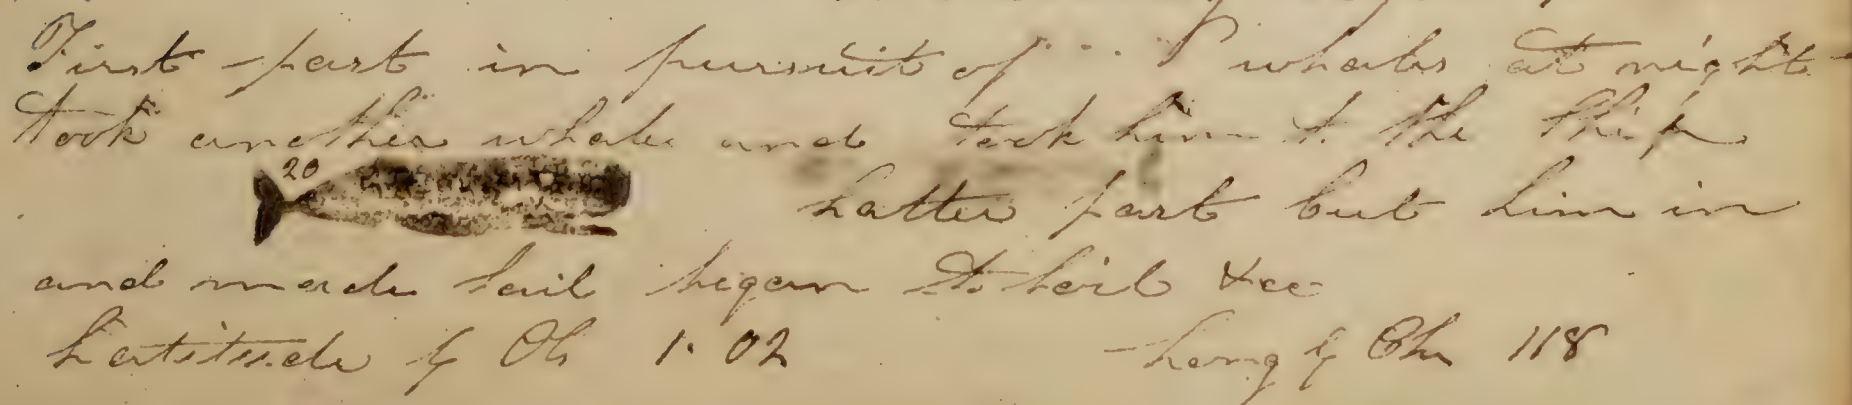 First part in pursuit of S whales at night
took another whale and took him to the Ship
20
Latter part cut him in
and made sail began to boil &cc
Latitude by Ob 1.02 Long by Chr 118